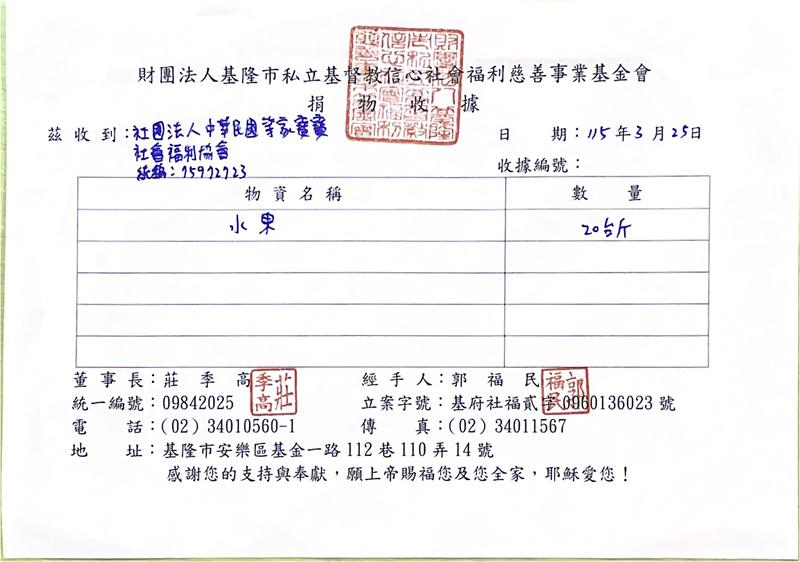 財團法人基隆市私立基督教信心社會福利慈善事業基金會
捐物收據
茲收到：社團法人中華民國等家寶寶
社會福利協會
統編：15972723
日期：115年3月25日
收據編號：
物資名稱 數量
水果 20台斤
董事長：莊季高 季高莊
經手人：郭福民 福民郭
統一編號：09842025
立案字號：基府社福貳字0960136023號
電話：(02) 34010560-1
傳真：(02) 34011567
地址：基隆市安樂區基金一路112巷110弄14號
感謝您的支持與奉獻，願上帝賜福您及您全家，耶穌愛您！